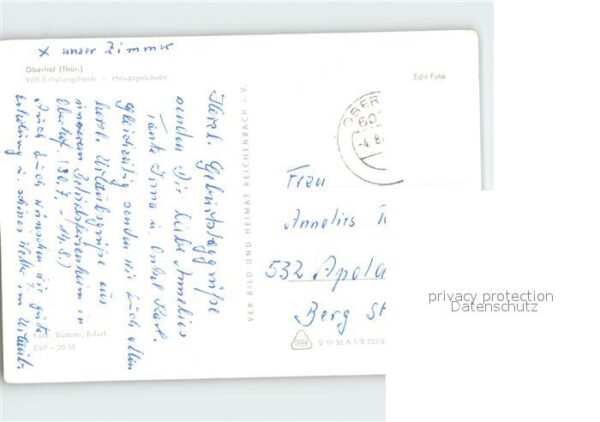 x unser Zimmer
Oberhof (Thür.)
VdK-Erholungsheim – Hauptgebäude
Edit Foto
Herzl. Geburtstagsgrüße
senden Dir liebe Annelies
Tante Irma u. Onkel Karl.
Gleichzeitig senden wir Euch allen
herzl. Urlaubsgrüße aus
unserem Betriebsferienheim in
Oberhof. (30.7. – 14.8.)
Auch Euch wünschen wir gute
Erholung u. schönes Wetter im Urlaub.
Foto: Büttner, Erfurt
EVP –.20 DM
VEB BILD UND HEIMAT REICHENBACH I. V.
OBER
60
-4.8.
Frau
Annelies
532 Apolda
Berg St
V 11 50 A 1/B
privacy protection
Datenschutz